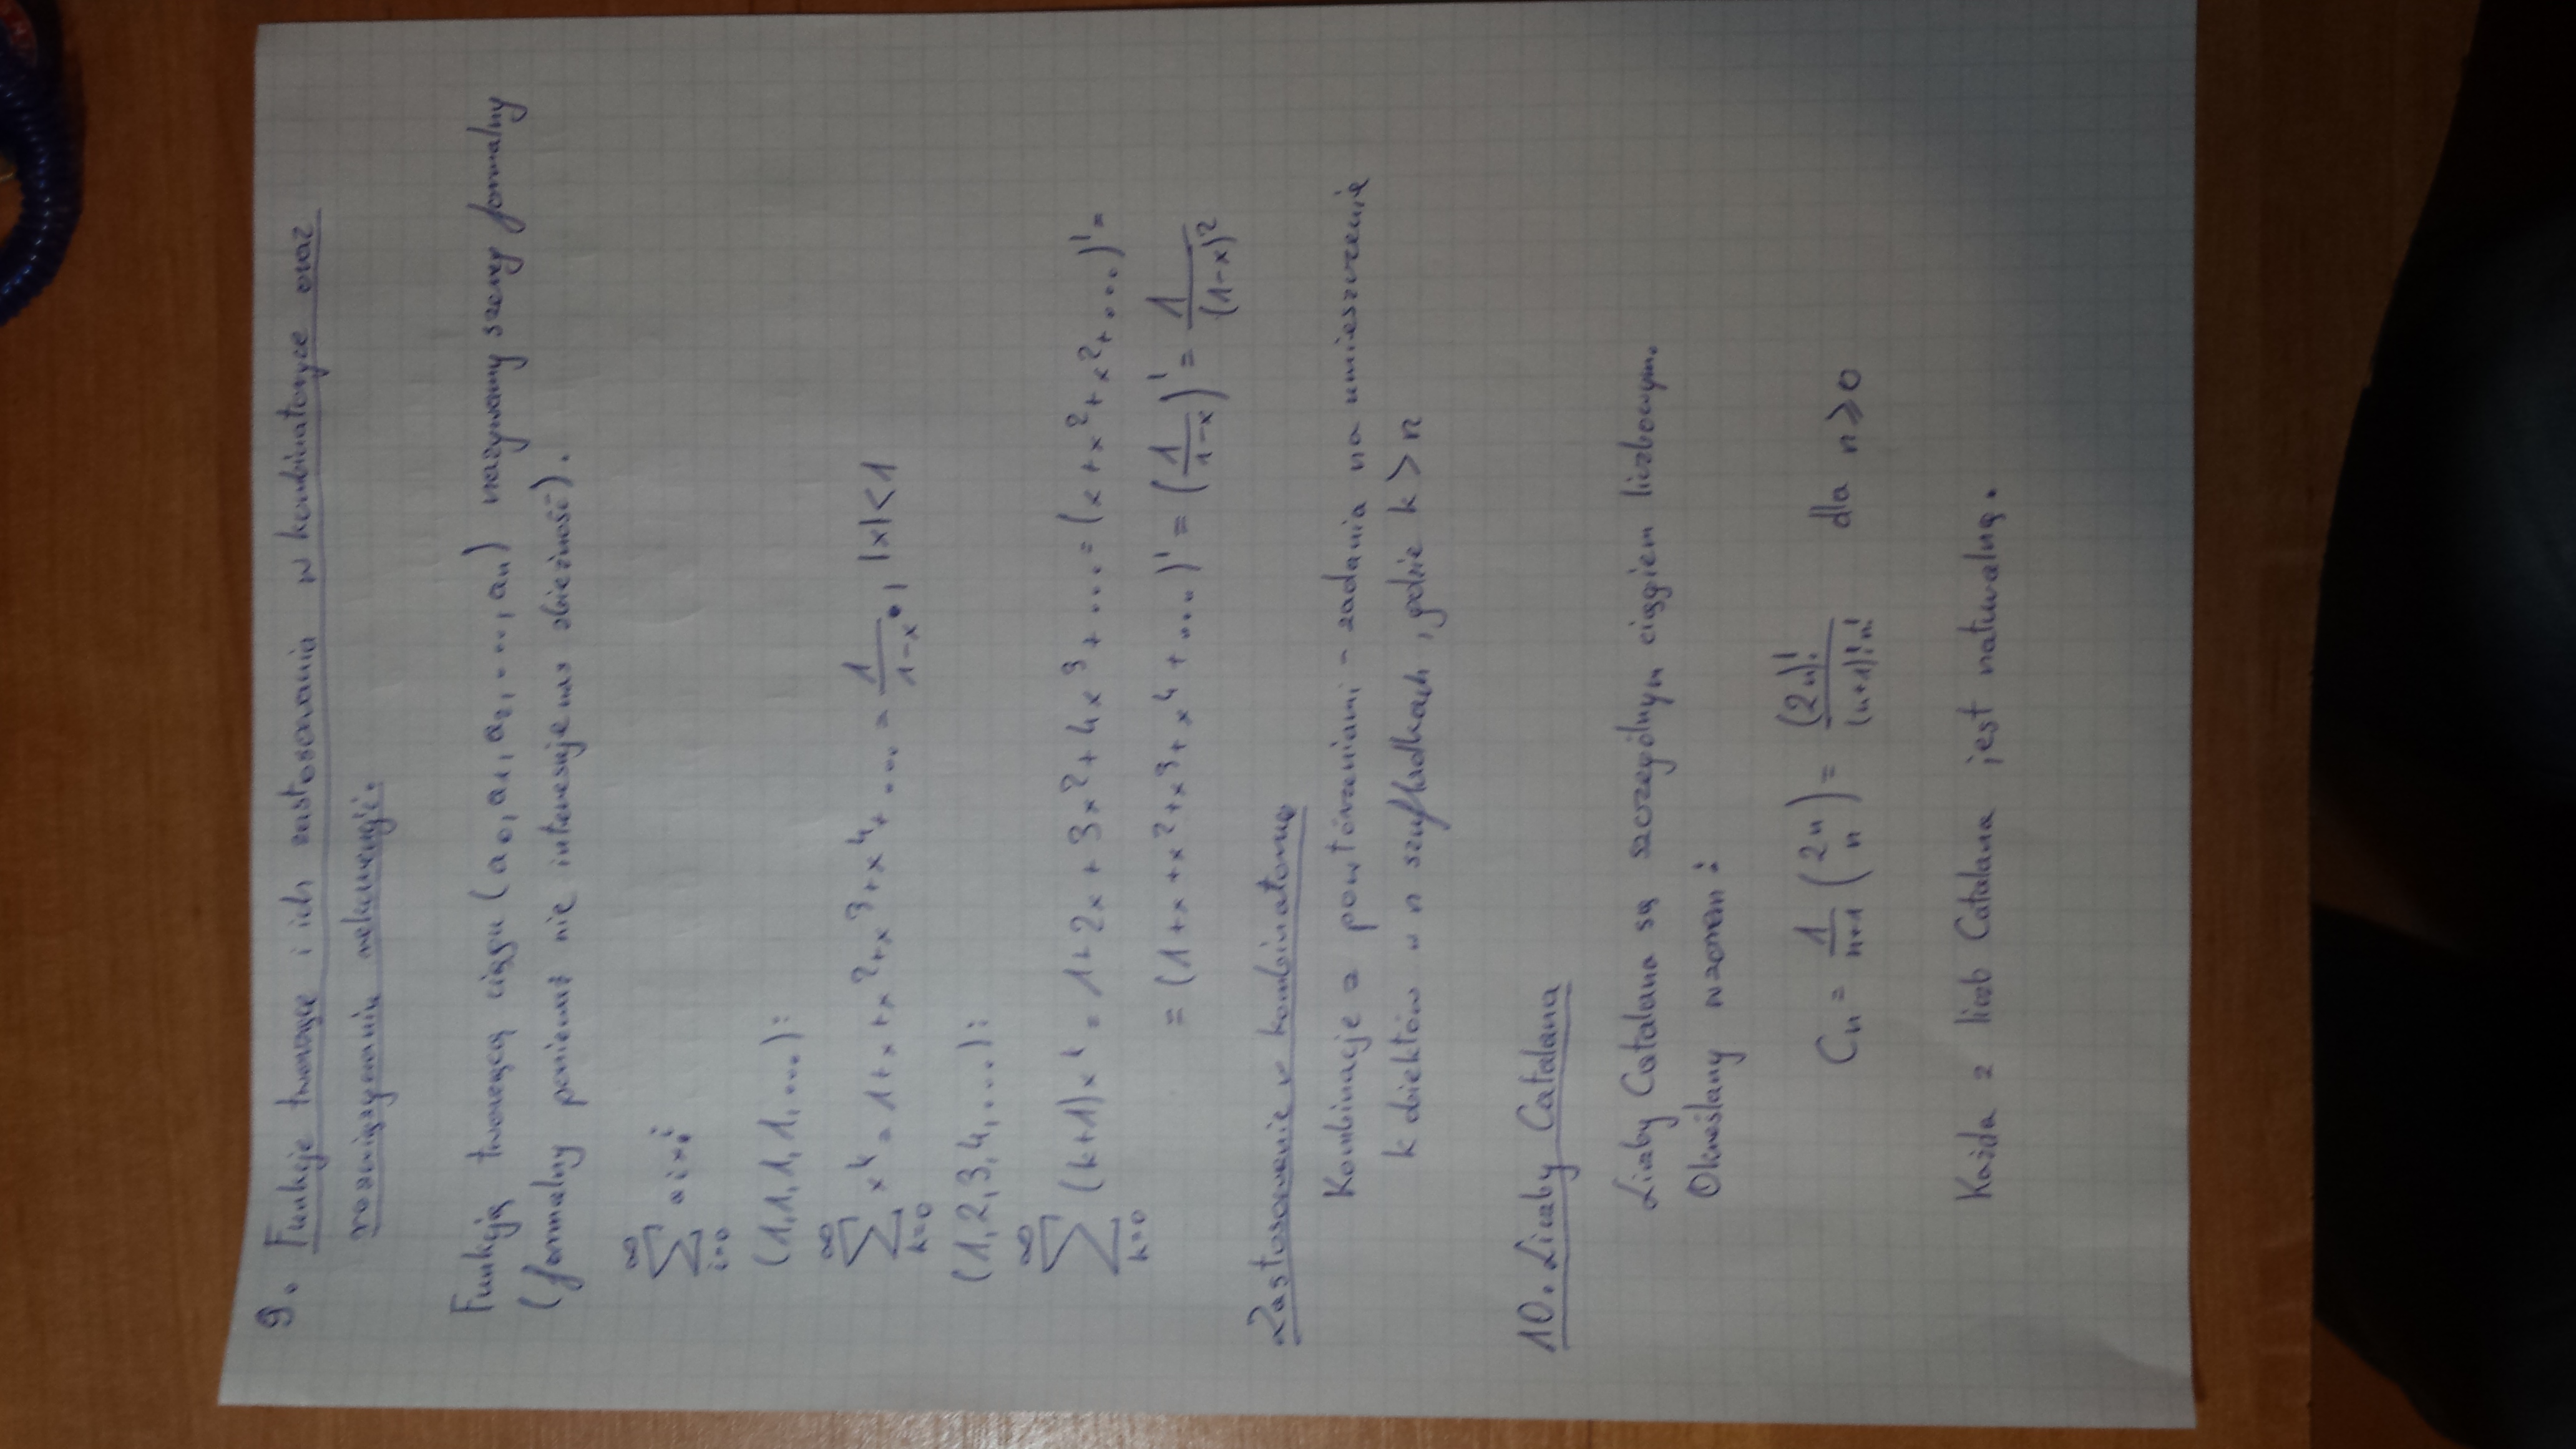 9. Funkcje tworzące i ich zastosowania w kombinatoryce oraz
rozwiązywaniu rekurencji.
Funkcją tworzącą ciągu (a₀, a₁, a₂, ..., aₙ) nazywamy szereg formalny
(formalny ponieważ nie interesuje nas zbieżność).
∑_{i=0}^{∞} aᵢxⁱ
(1,1,1,1,...):
∑_{k=0}^{∞} xᵏ = 1+x+x²+x³+x⁴+... = 1/(1-x), |x|<1
(1,2,3,4,...):
∑_{k=0}^{∞} (k+1)xᵏ = 1+2x+3x²+4x³+... = (x+x²+x²+...)' =
= (1+x+x²+x³+x⁴+...)' = (1/(1-x))' = 1/(1-x)²
Zastosowanie w kombinatoryce
Kombinacje z powtórzeniami - zadania na umieszczenie
k obiektów w n szufladkach, gdzie k > n
10. Liczby Catalana
Liczby Catalana są szczególnym ciągiem liczbowym.
Określany wzorem:
Cₙ = 1/(n+1) (2n n) = (2n)!/((n+1)!n!) dla n ⩾ 0
Każda z liczb Catalana jest naturalną.